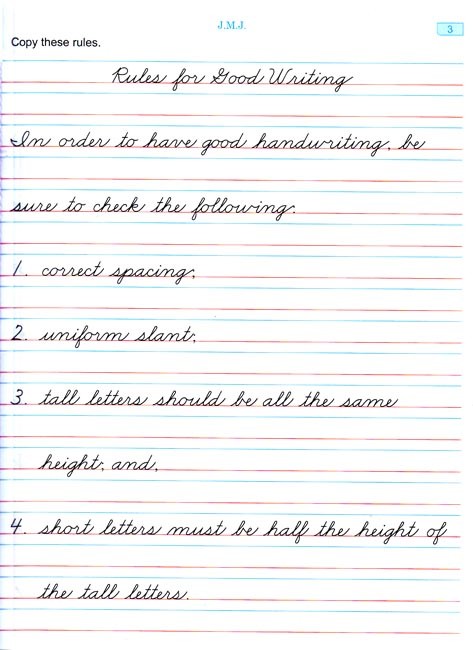 J.M.J.
3
Copy these rules.
Rules for Good Writing
In order to have good handwriting, be
sure to check the following:
1. correct spacing;
2. uniform slant;
3. tall letters should be all the same
height; and,
4. short letters must be half the height of
the tall letters.